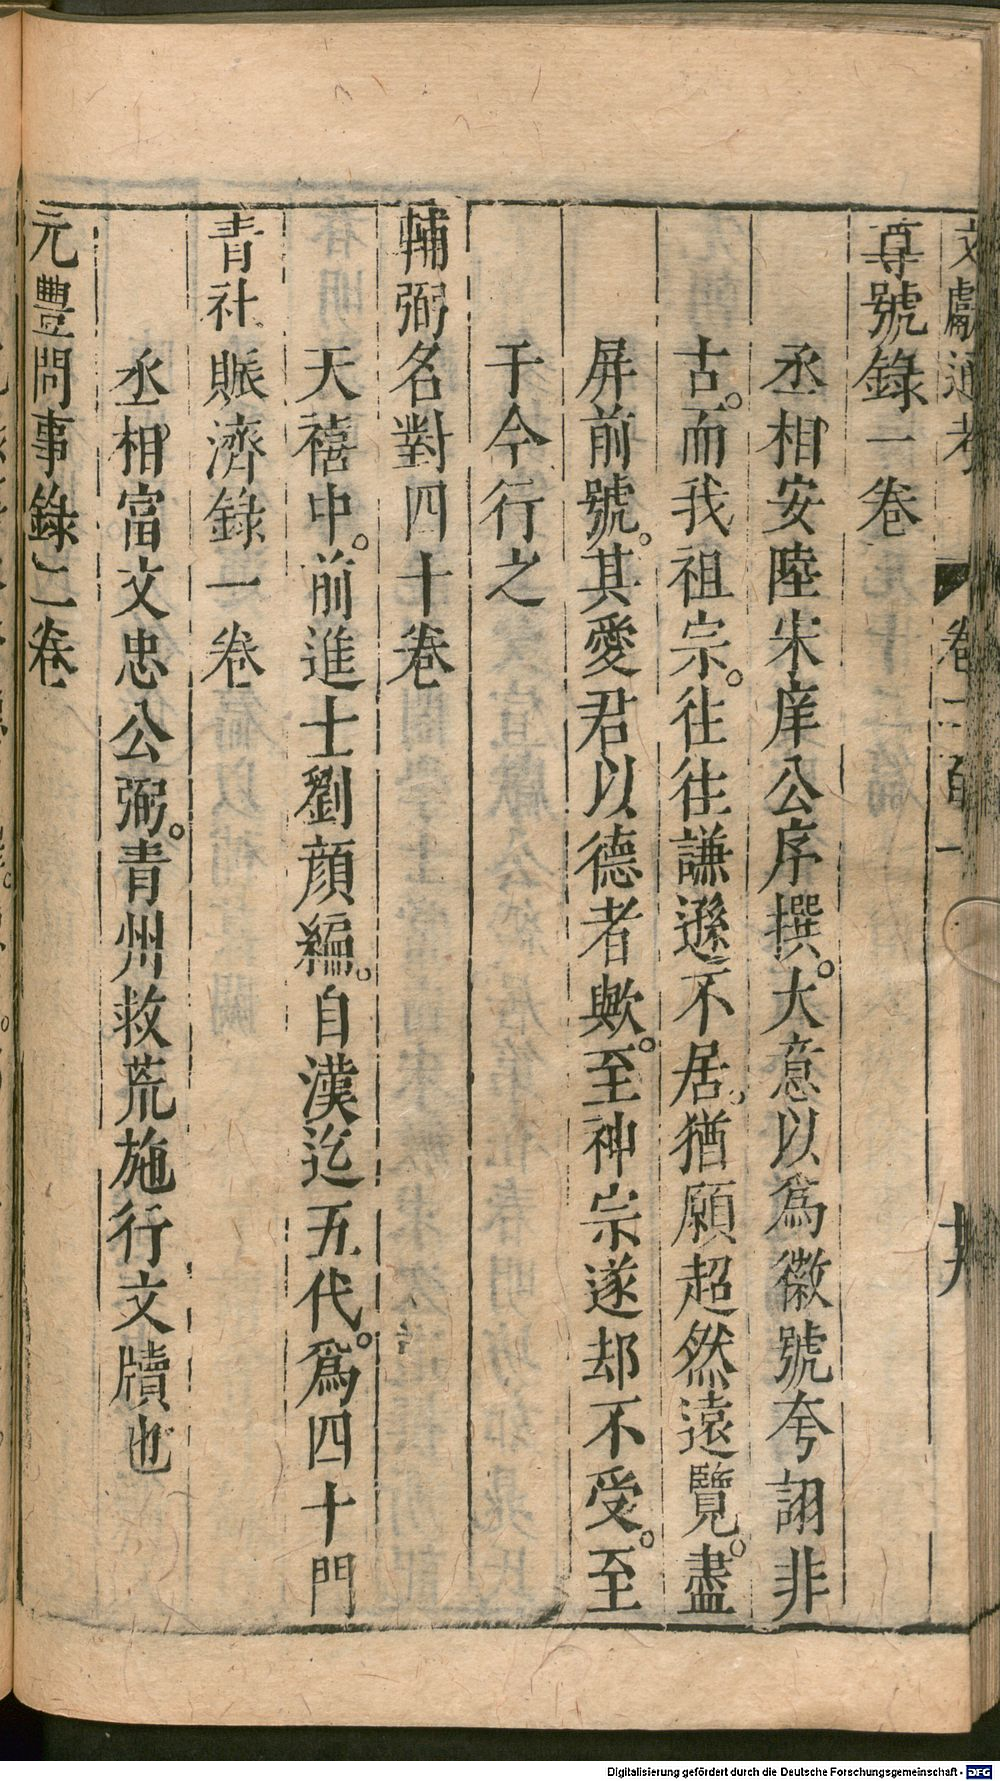 文獻通考 卷二百一
尊號錄一卷
丞相安陸宋庠公序撰。大意以爲徽號夸詡非
古。而我祖宗。往往謙遜不居。猶願超然遠覽。盡
屏前號。其愛君以德者歟。至神宗遂却不受。至
于今行之
輔弼名對四十卷
天禧中。前進士劉顏編。自漢迄五代。爲四十門
青社賑濟錄一卷
丞相富文忠公弼。青州救荒施行文牘也
元豐問事錄二卷
Digitalisierung gefördert durch die Deutsche Forschungsgemeinschaft - DFG